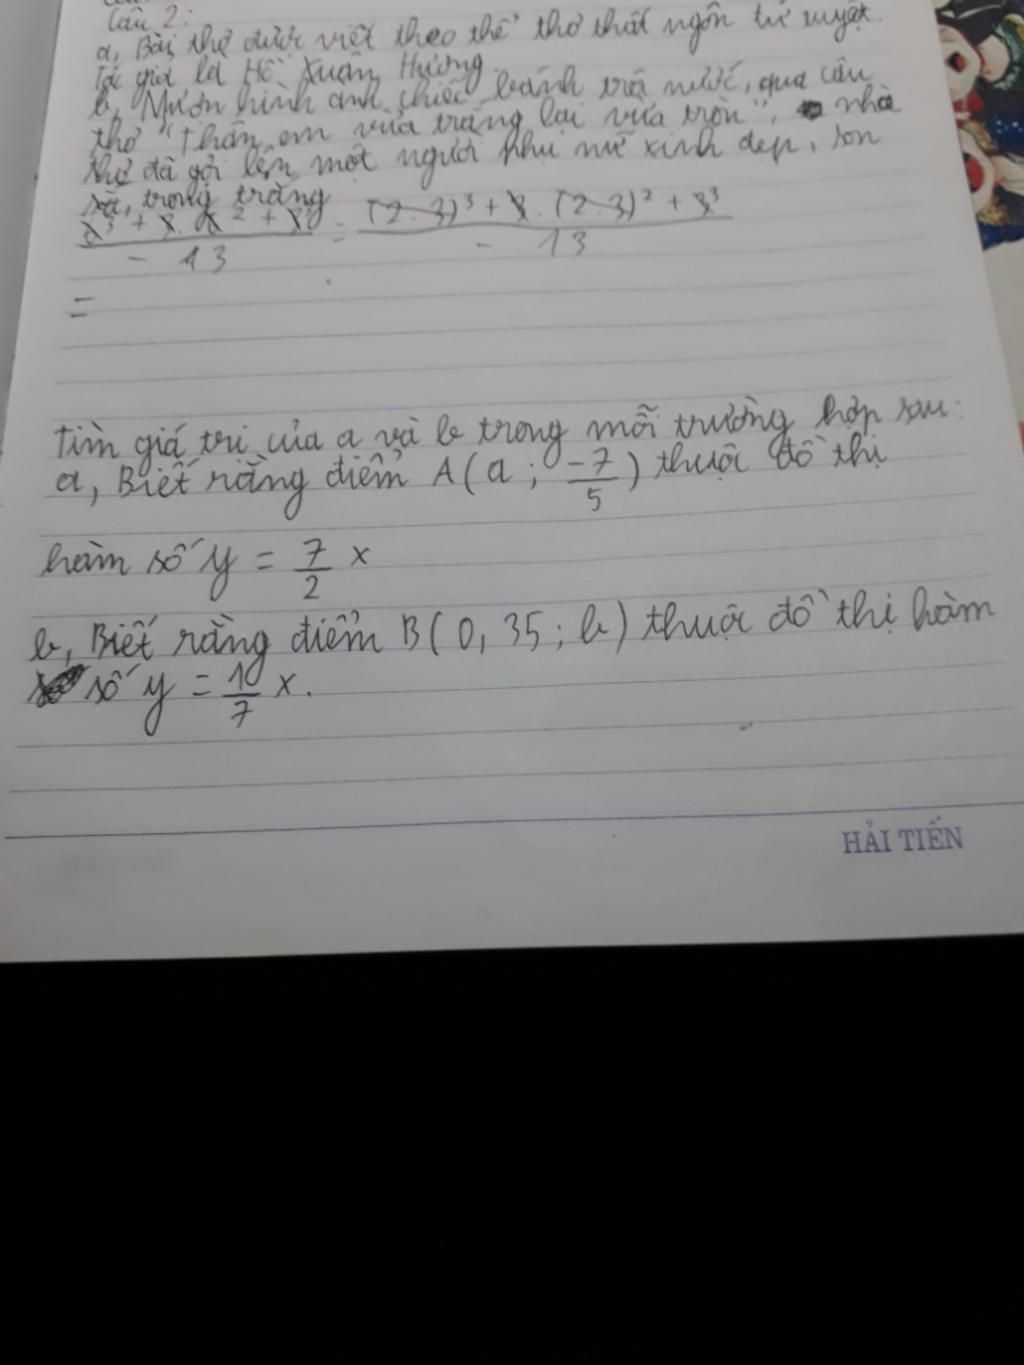 Câu 2:
a, Bài thơ được viết theo thể thơ thất ngôn tứ tuyệt.
Tác giả là Hồ Xuân Hương.
b, Mượn hình ảnh chiếc bánh trôi nước, qua câu
thơ "Thân em vừa trắng lại vừa tròn", nhà
thơ đã gợi lên một người phụ nữ xinh đẹp, son
sắc, trong trắng
6³ + 3. 6² + 3³ / - 13 = (2.3)³ + 3. (2.3)² + 3³ / - 13
=
Tìm giá trị của a và b trong mỗi trường hợp sau:
a, Biết rằng điểm A(a; -7/5) thuộc đồ thị
hàm số y = 7/2 x
b, Biết rằng điểm B(0,35; b) thuộc đồ thị hàm
số y = 10/7 x.
HẢI TIẾN